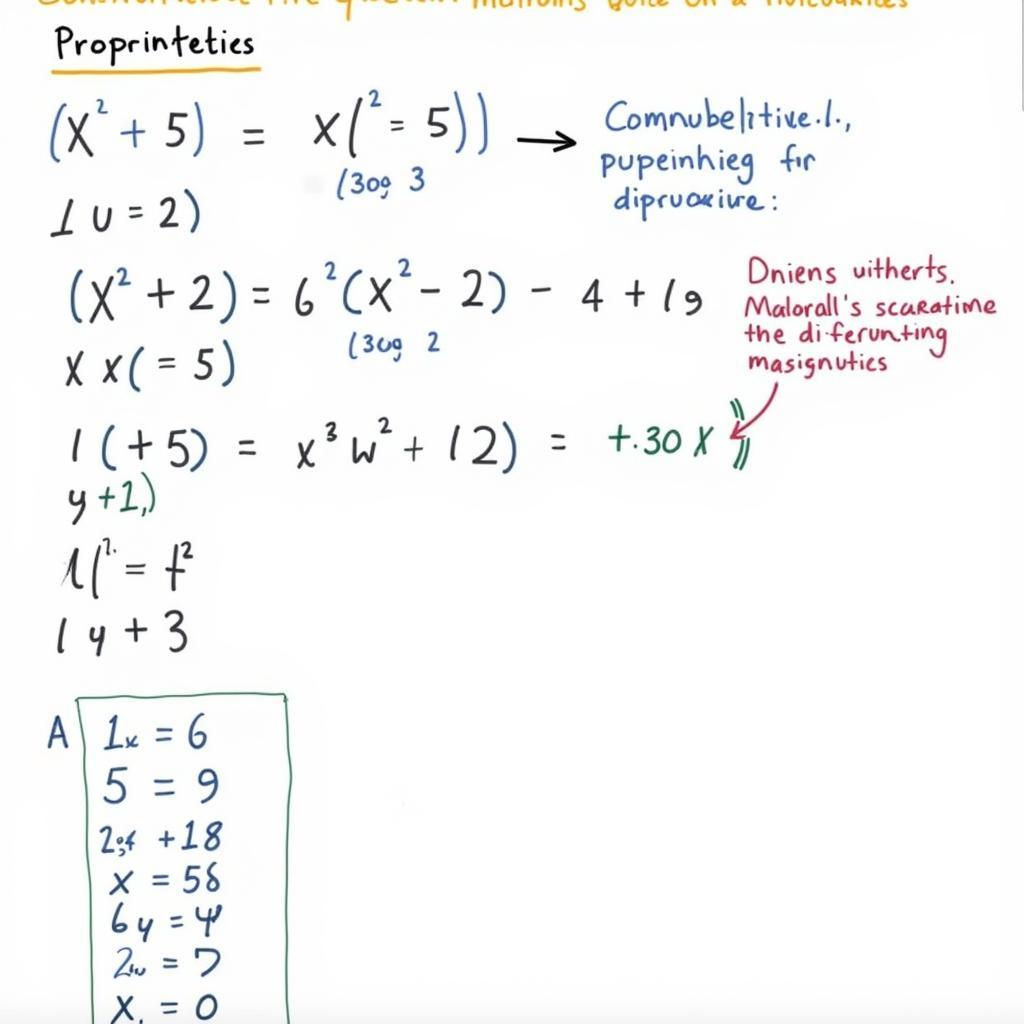 Proprinteties
(x² + 5) = x(² = 5)) → Comnubelitive.l.,
(3og 3 pupeinhieg fir
1 u = 2) dipruoxive:
(x² + 2) = 6²(x² - 2) - 4 + 19
(3og 2
x x( = 5)
Dniens uitherts.
Malorall's scaratime
the di-ferunting
masignutics
1 (+5) = x³ w² + 12) = +.30 x
y +1,)
1(². = f²
1 y + 3
A 1x = 6
5 = 9
+18
x = 58
6y = 4
= 7
x. = 0